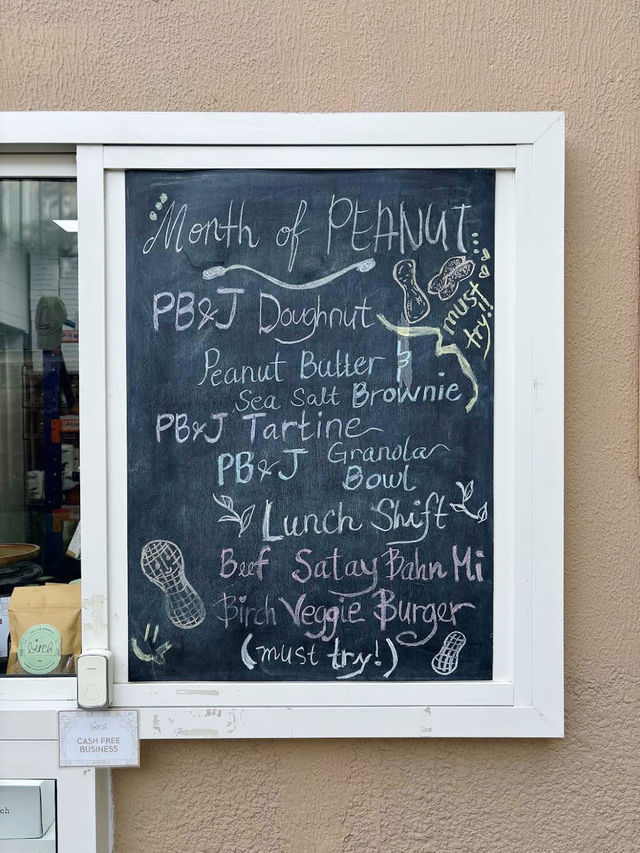 Month of PEANUT...
must
try!
PB&J Doughnut
Peanut Butter &
Sea Salt Brownie
PB&J Tartine
PB&J Granola
Bowl
Lunch Shift
Beef Satay Bahn Mi
Birch Veggie Burger
(must try!)
birch
birch
CASH FREE
BUSINESS
ch